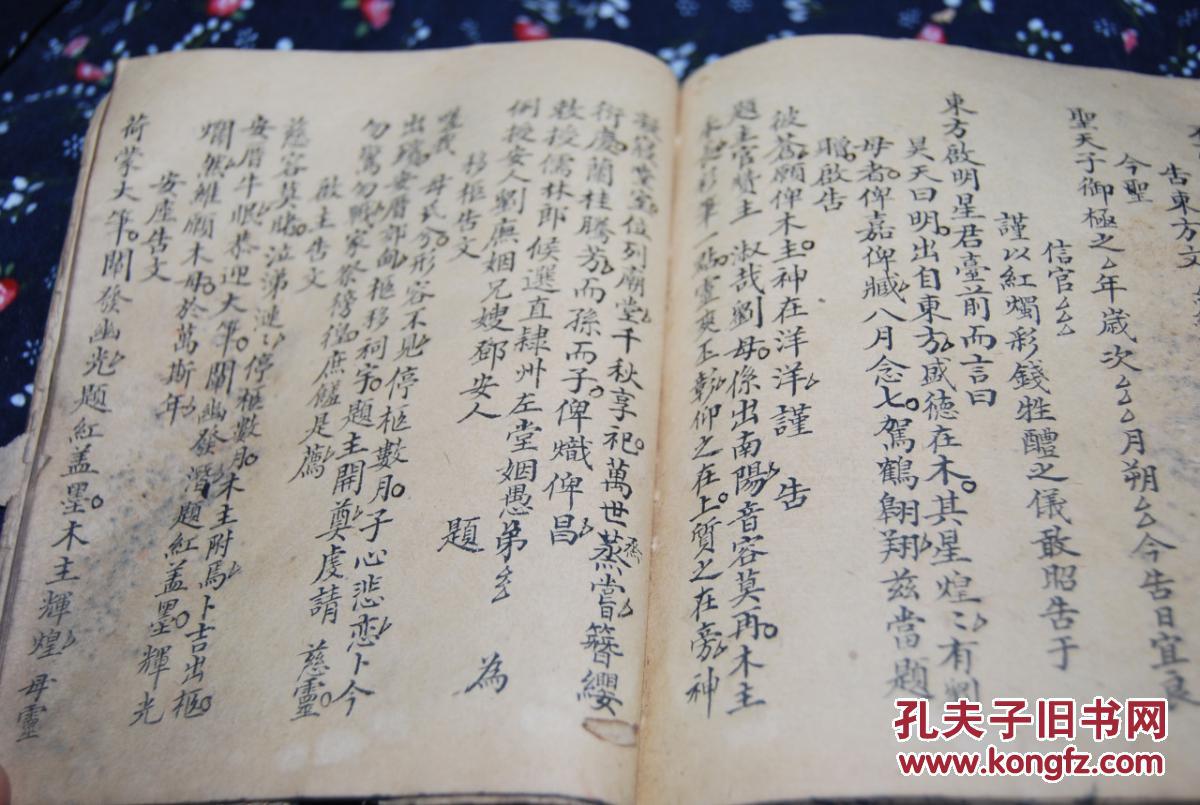 告東方文
今聖
聖天子御極之年歲次厶厶月朔厶厶今告日宜良
信官厶厶
謹以紅燭彩錢牲醴之儀敢昭告于
東方啟明星君臺前而言曰
昊天曰明出自東方盛德在木其星煌〻有劉
母者俾嘉俾臧八月念七駕鶴翱翔茲當題
贈啟告
彼蒼願俾木主神在洋洋謹 告
題主官贊主 淑哉劉母係出南陽音容莫再木主
彩筆一點靈爽丕彰仰之在上質之在旁神
室位列廟堂千秋享祀萬世蒸嘗簪纓
衍慶蘭桂騰芳而孫而子俾熾俾昌
敕授儒林郎候選直隸州左堂姻愚弟厶厶 為
例授安人劉廡姻兄嫂鄧安人 題
移柩告文
嗟我 母式分形容不見停柩數月子心悲恋卜今
出殯安厝郭向柩移祠宇題主開奠虔請 慈靈
勿驚勿 家祭徬徨庶饈是薦
啟主告文
慈容莫睹泣涕漣〻停柩數月木主附焉卜吉出柩
安厝牛眠恭迎大筆闡幽發潛題紅盖墨輝光
爛然維願木母於萬斯年
安座告文
荷蒙大筆闡發幽光題紅盖墨木主輝煌 母靈
孔夫子旧书网
www.kongfz.com